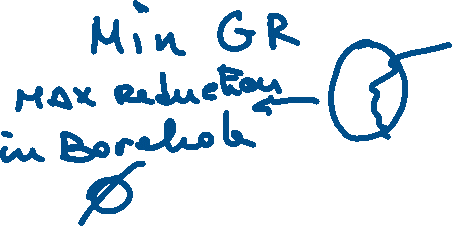 Min GR
MAX Reduction
in Borehole
Ø